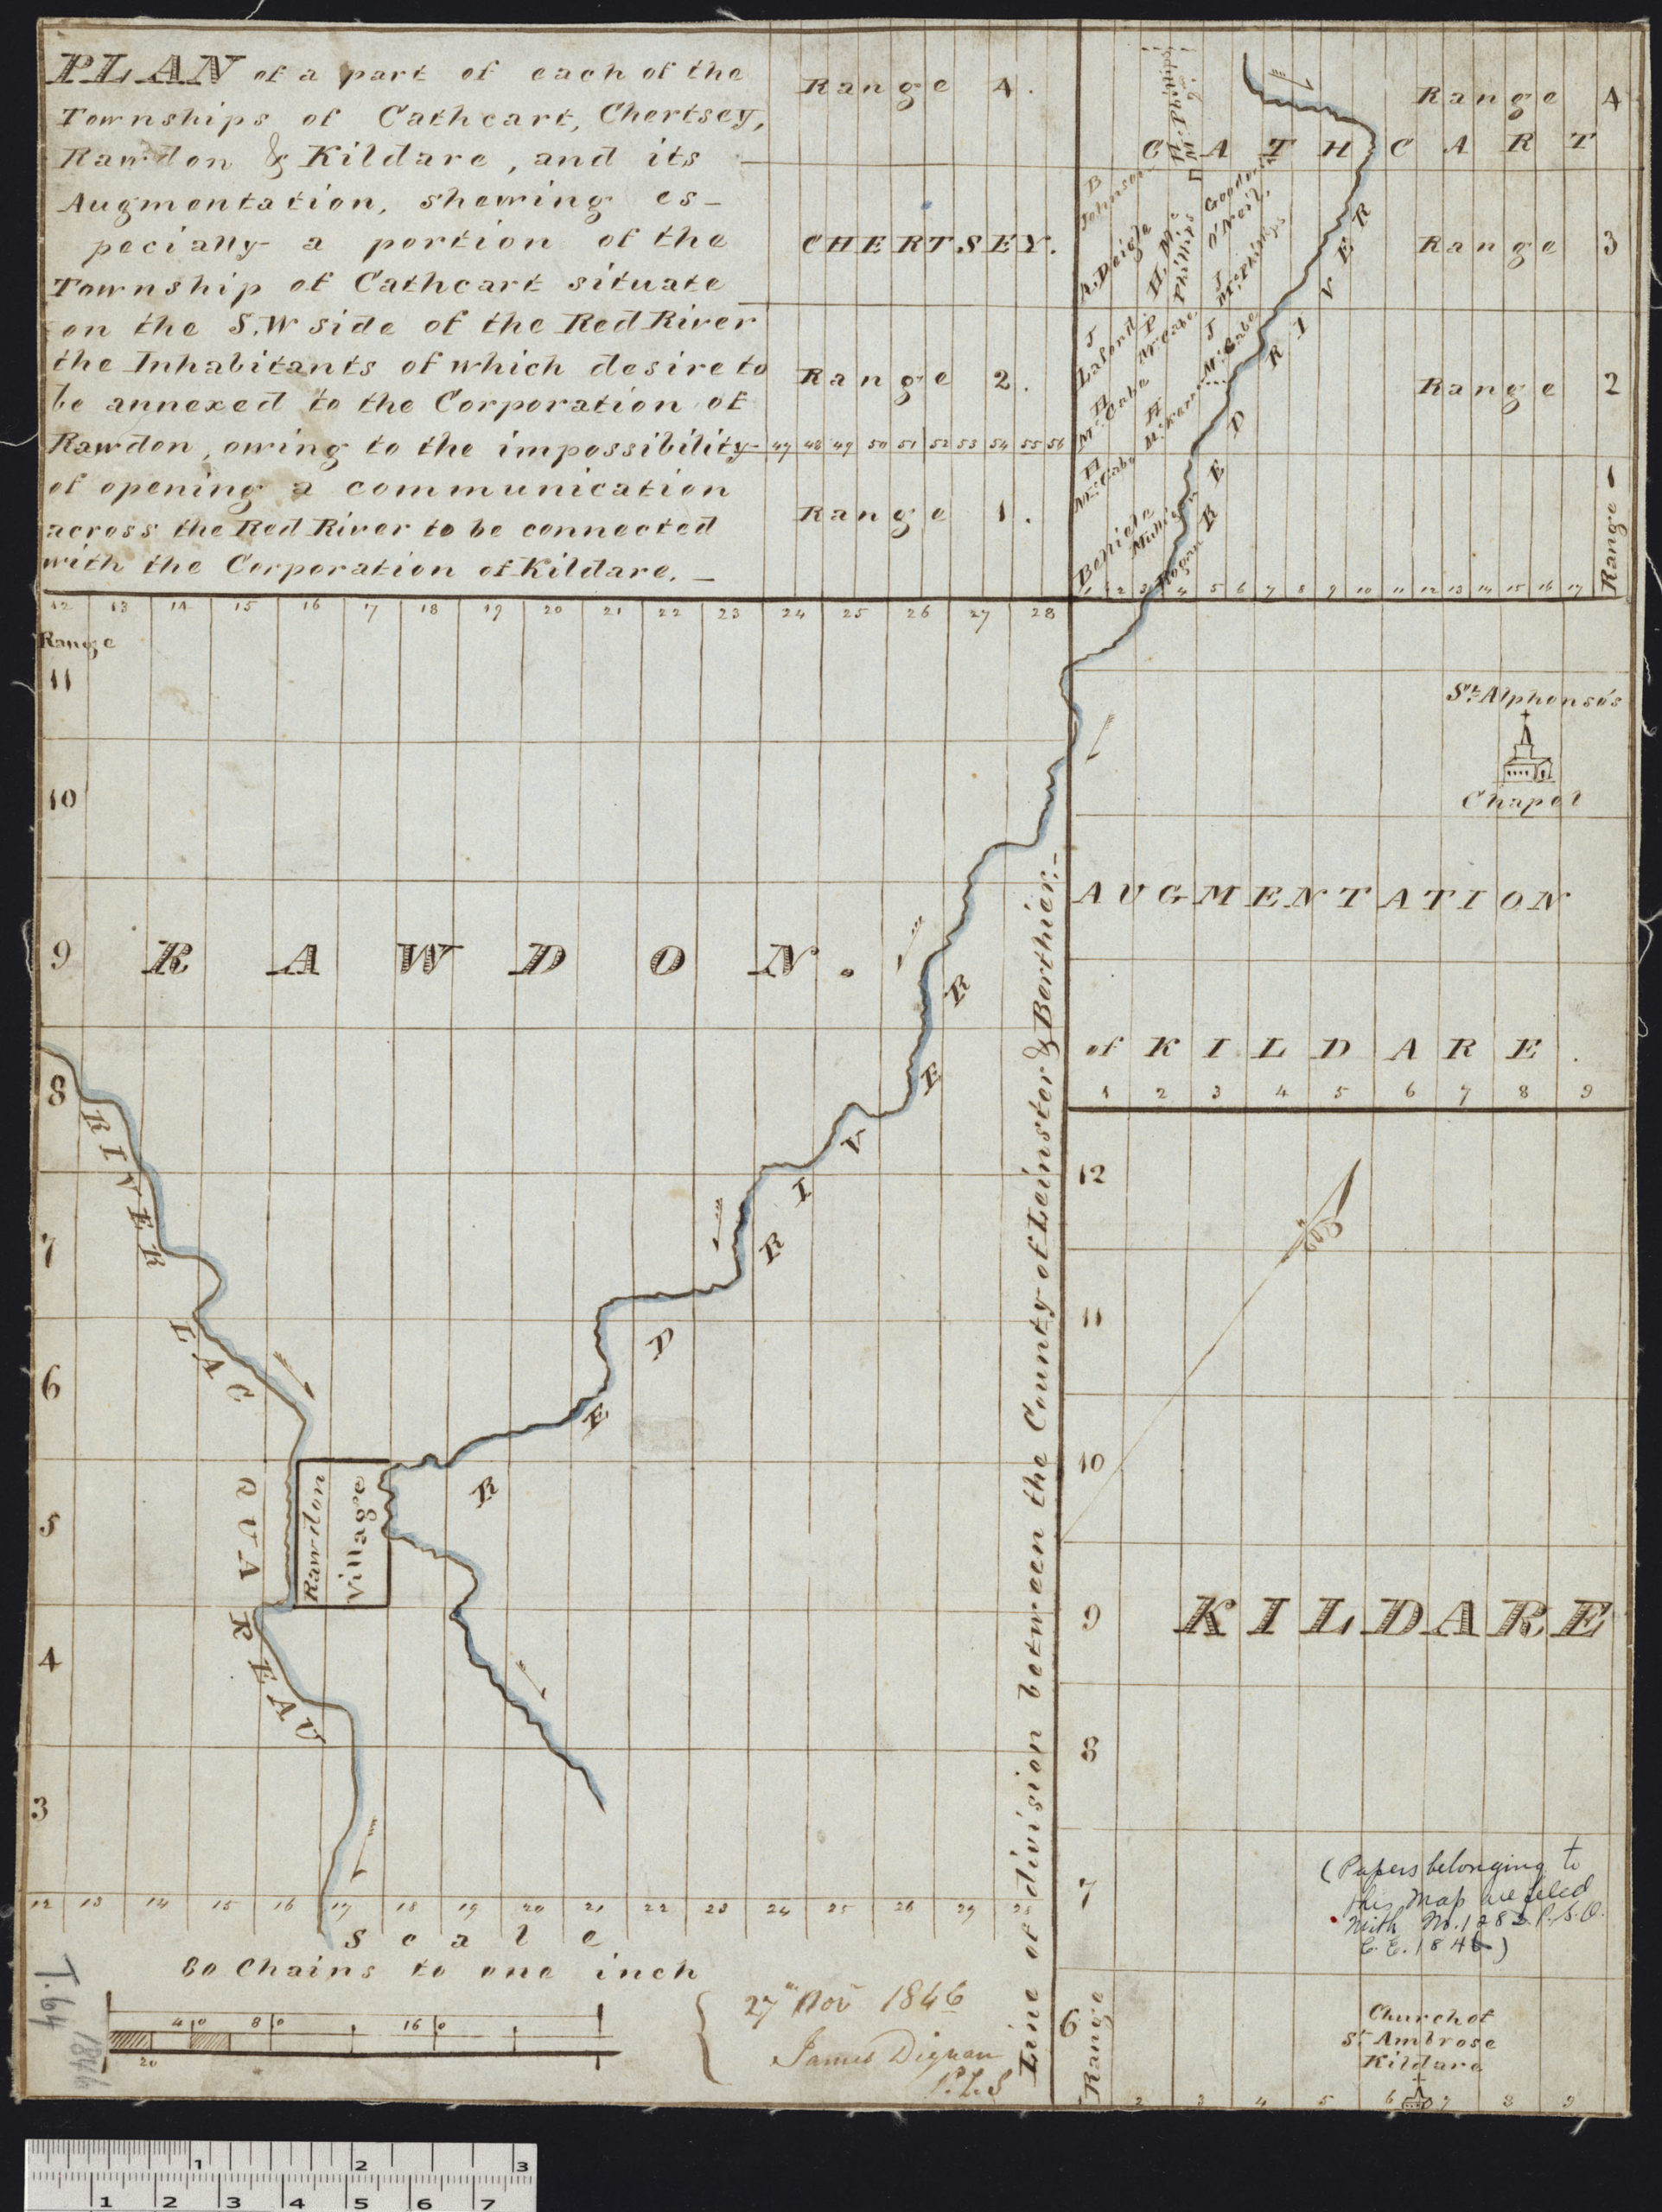 PLAN of a part of each of the
Townships of Cathcart, Chertsey,
Rawdon & Kildare, and its
Augmentation, shewing es-
pecially a portion of the
Township of Cathcart situate
on the S.W side of the Red River
the Inhabitants of which desire to
be annexed to the Corporation of
Rawdon, owing to the impossibility
of opening a communication
across the Red River to be connected
with the Corporation of Kildare. -
Range 4.
CHERTSEY.
Range 2.
47 48 49 50 51 52 53 54 55 56
Range 1.
Range 4
CATHCART
Range 3
Range 2
Range 1
B Johnson
A. Deigle
H. Mc Phillips
Goodwin
O'Neil,
J McPhillips
J Lafond
P McCabe
J McCabe
H McCabe
H
H McCabe
Hogan
RED RIVER
1 2 3 4 5 6 7 8 9 10 11 12 13 14 15 16 17
12 13 14 15 16 17 18 19 20 21 22 23 24 25 26 27 28
Range
11
10
9
8
7
6
5
4
3
RAWDON.
RED RIVER
RIVER LAC QUARREAU
Rawdon
Village
12 13 14 15 16 17 18 19 20 21 22 23 24 25 26 27 28
Line of division between the County of Leinster & Berthier.-
St. Alphonso's
Chapel
AUGMENTATION
of KILDARE.
1 2 3 4 5 6 7 8 9
12
11
10
9
8
7
6
Range
KILDARE
(Papers belonging to
this map are filed
with No. 1283 P.S.O.
C.E. 1846)
Church of
St Ambrose
Kildare
2 3 4 5 6 7 8 9
Scale
80 Chains to one inch
40 80 160
20
27th Nov 1846
James Dignan
P.L.S
T.64
1846
1 2 3
1 2 3 4 5 6 7